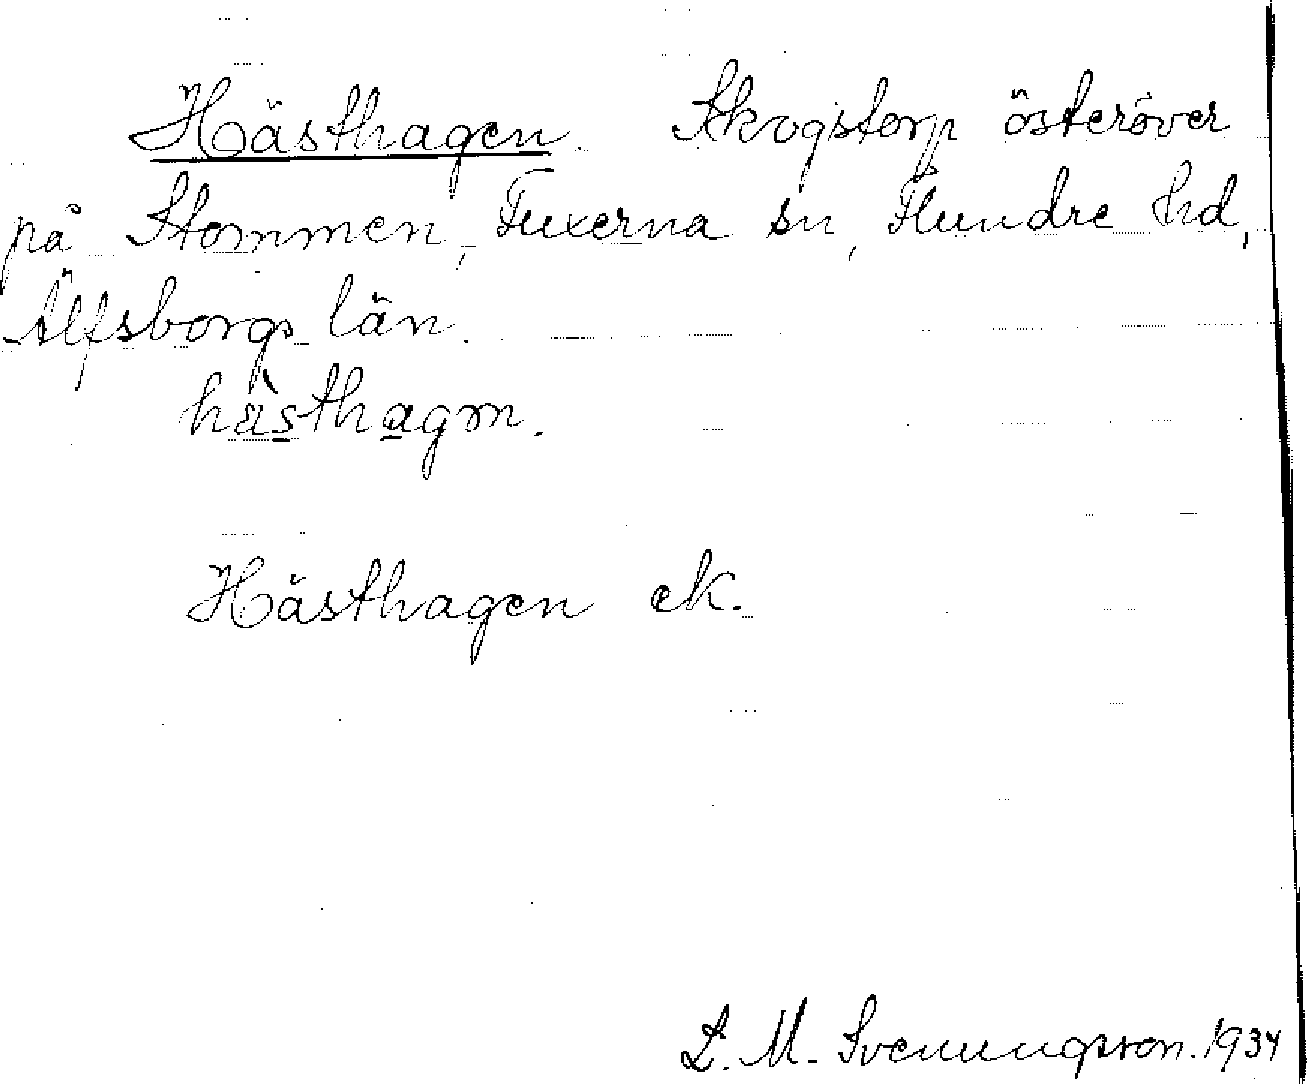 Hästhagen. Skogstorp österöver
på Stommen, Fuxerna sn, Flundre hd,
Älfsborgs län.
hàsthagm.
Hästhagen ek.
L. M. Svenungsson. 1934